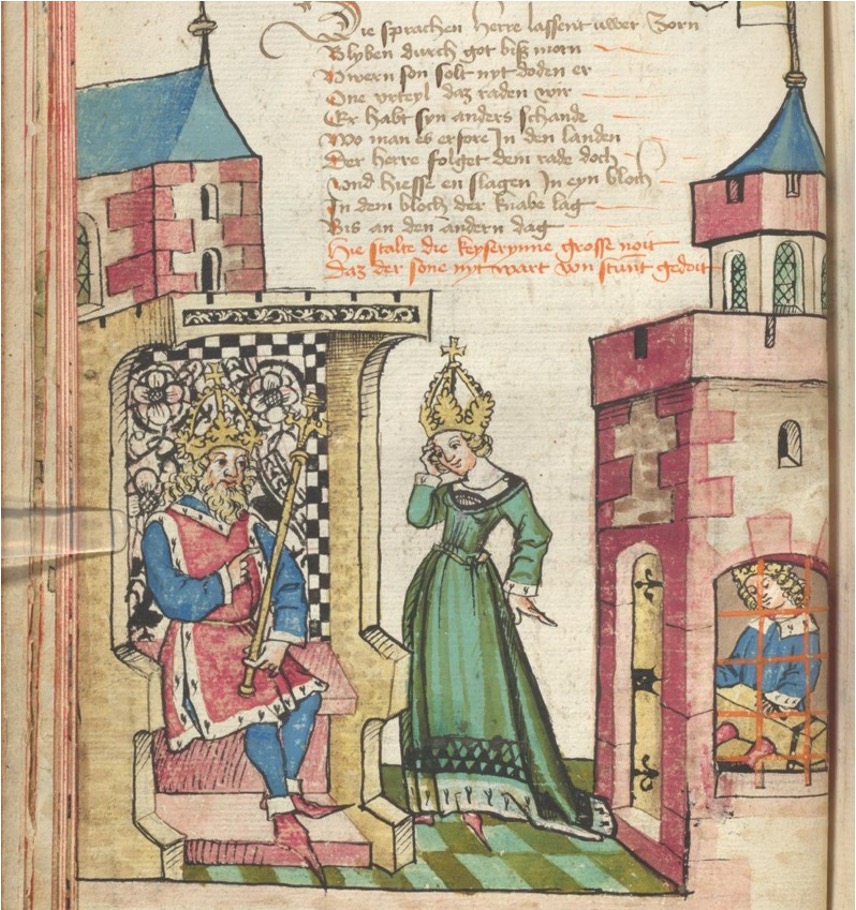 Die sprachen herre lassent uwer zorn
Blyben durch got biß morn
Uwern son solt nyt doden er
One vrteyl daz raden wir
Er habt syn anders schande
Wo man es erfore In den landen
Der herre folget dem rade doch
Vnd hiesse en slagen In eyn bloch
In dem bloch der knabe lag
Bis an den andern dag
Hie stalte die keyserynne grosse noit
Daz der sone nyt wart von stunt gedoit